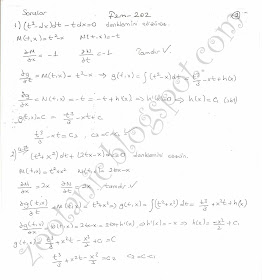 Sorular Fzm-202
1) (t²-x)dt - t dx=0 denklemini çözünüz.
M(t,x)=t²-x N(t,x)=-t
∂M/∂x = -1 ∂N/∂t = -1 Tamdır √
∂g/∂t = M(t,x) = t²-x ⇒ g(t,x) = ∫(t²-x)dt = t³/3 - xt + h(x)
∂g/∂x = N(t,x) = -t = -t + h'(x) ⇒ h'(x)=0 ⇒ h(x)=C₁
g(t,x)=C ⇒ t³/3 - xt + C
t³/3 - xt = C₂
2) (t²+x²)dt + (2tx-x)dx=0 denklemini çözün.
M(t,x)=t²+x² N(t,x)= 2tx-x
∂M/∂x = 2x ∂N/∂t = 2x tamdır √
∂g(t,x)/∂t = M(t,x) = t²+x² ⇒ g(t,x) = ∫(t²+x²)dt = t³/3 + x²t + h(x)
∂g(t,x)/∂x = N(t,x) = 2tx-x = 2tx+h'(x) ⇒ h'(x)=-x ⇒ h(x)= -x²/2 + C₁
g(t,x) = t³/3 + x²t - x²/2 + C₁ = C
t³/3 + x²t - x²/2 = C₂
zoobaile.blogspot.com